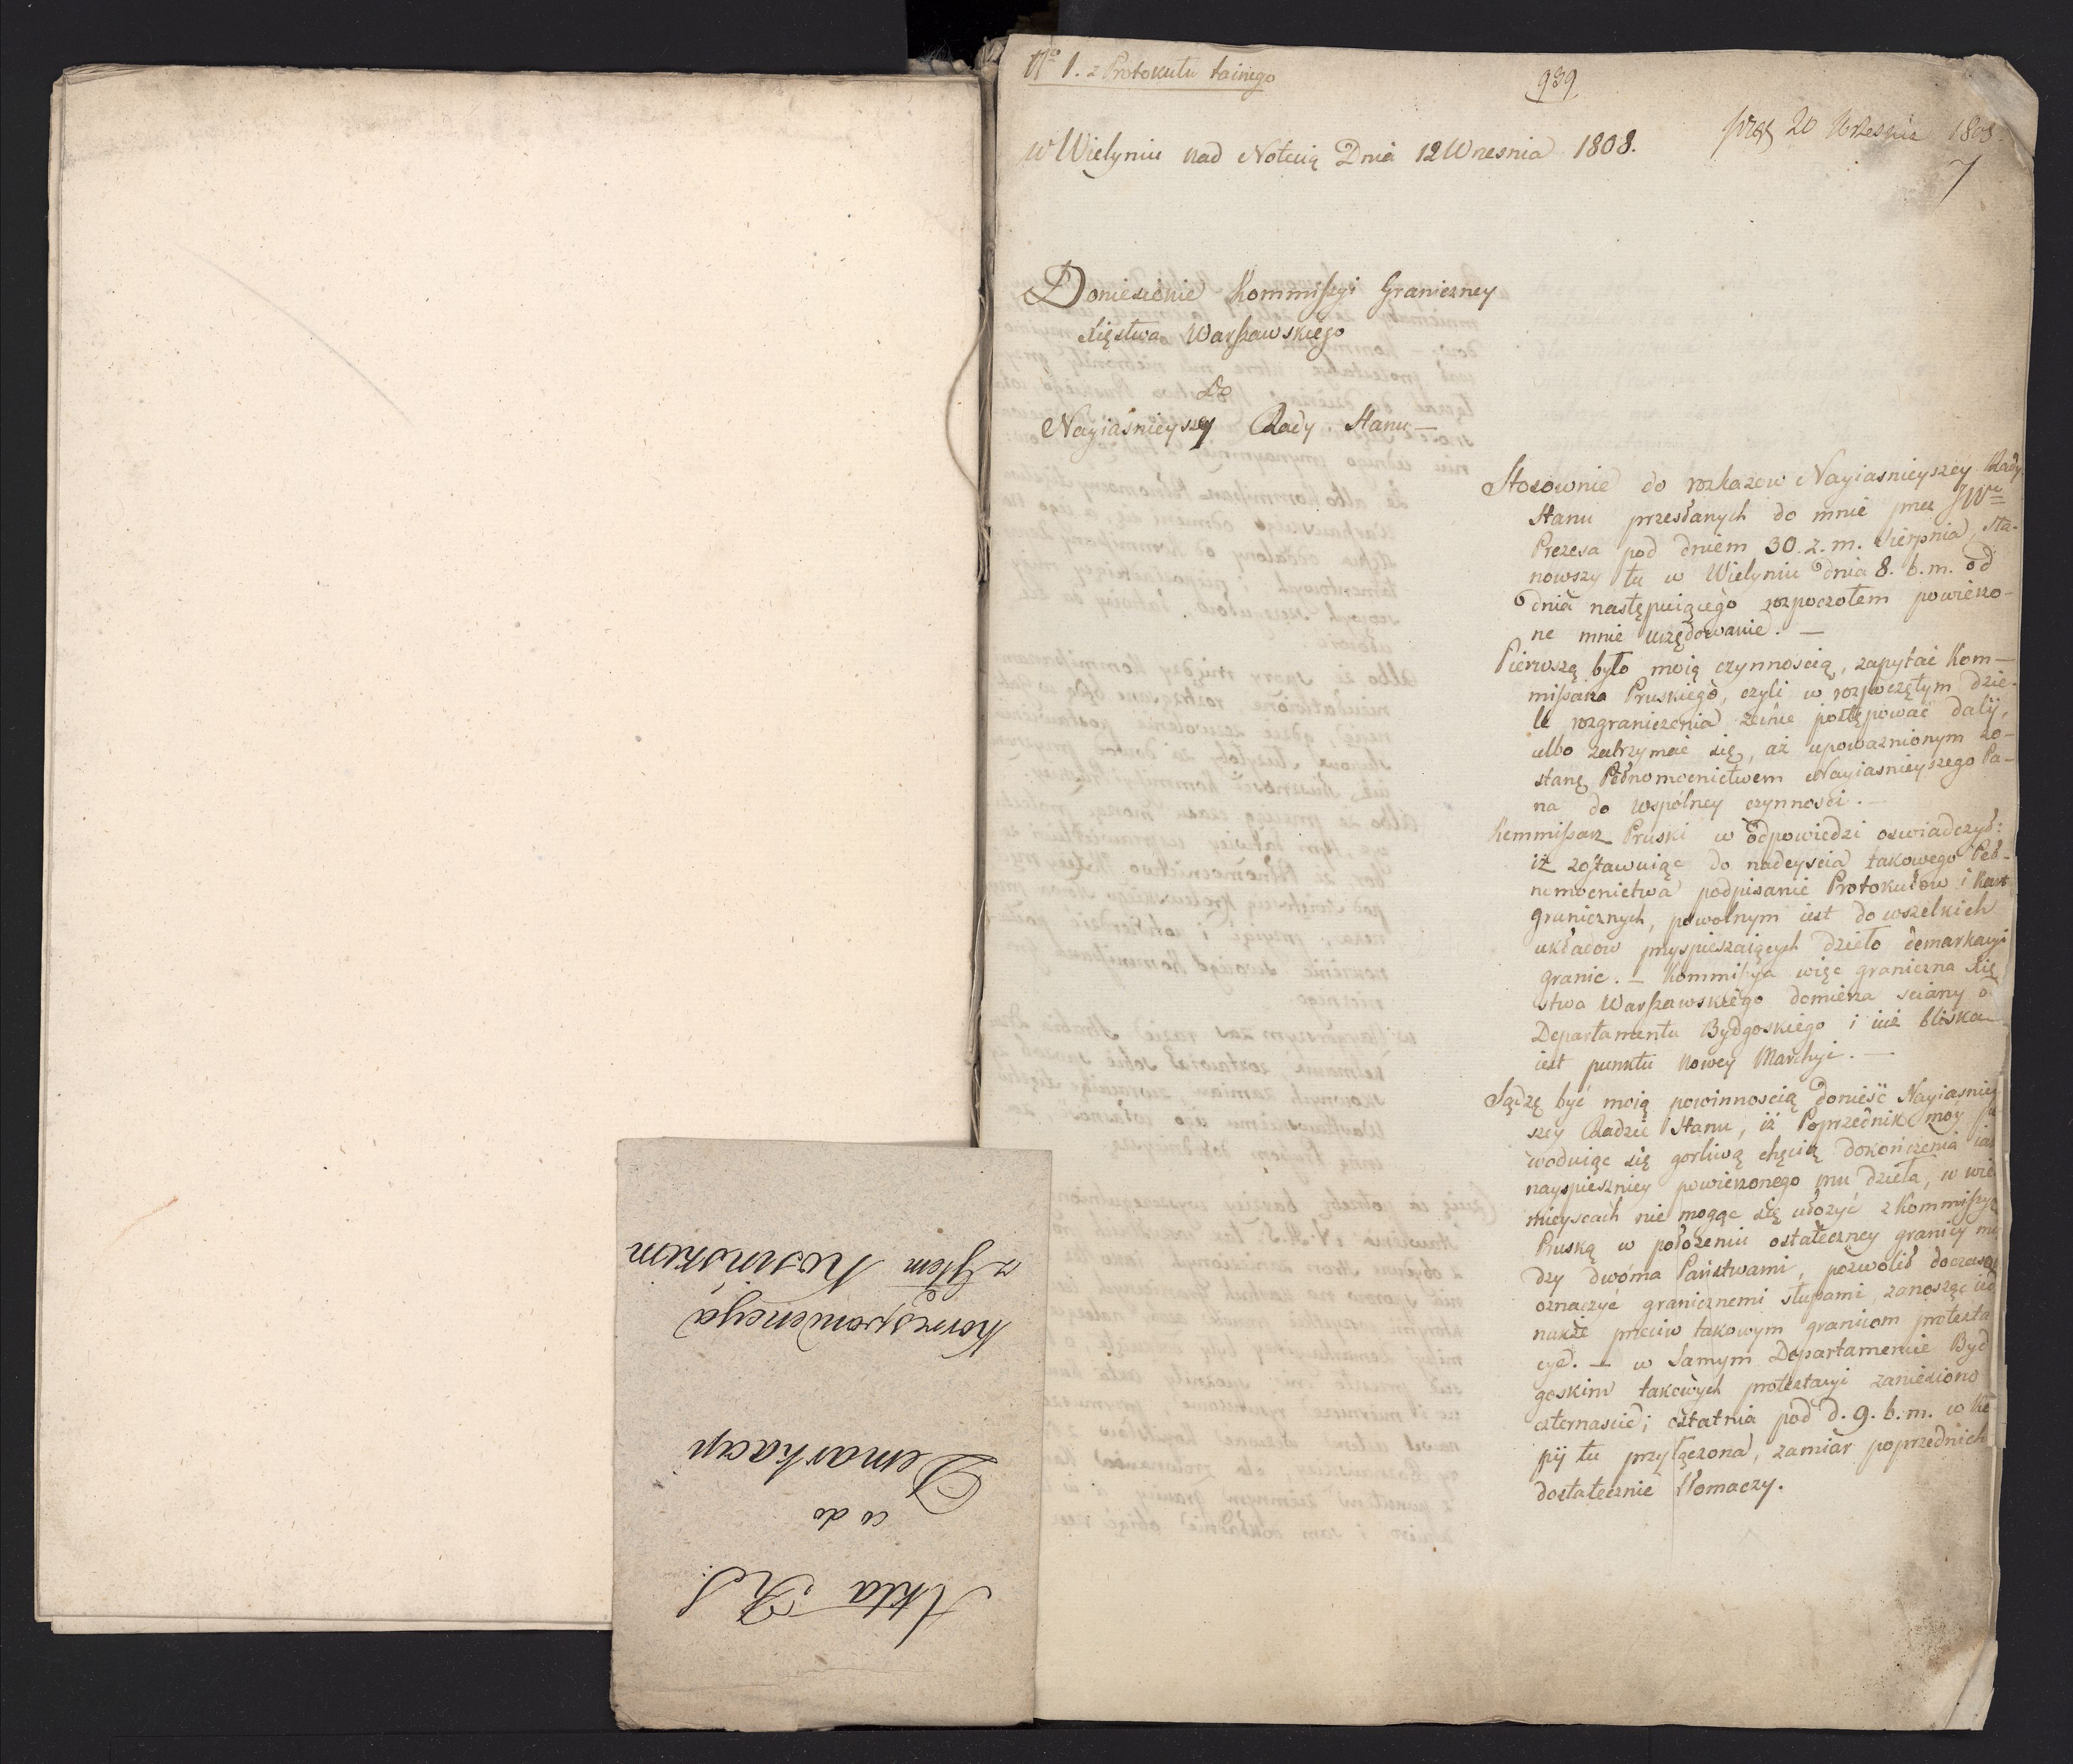 No 1. z Protokułu tainego
939
prez 20 Wrzesnia 1808.
7
w Wielyniu nad Notecią Dnia 12 Wrzesnia 1808.
Doniesienie Kommissyi Graniczney
Xięstwa Warszawskiego
Do
Nayiaśnieyszey Rady Stanu —
Stosownie do rozkazow Nayiasnieyszey Rady
Stanu przesłanych do mnie przez JWo
Prezesa pod dniem 30. z. m. Sierpnia, sta-
nowszy tu w Wielyniu dnia 8. b. m. od
dnia następuiącego rozpoczołem powierzo-
ne mnie urzędowanie. —
Pierwszą było moią czynnoscią, zapytać Kom-
missarza Pruskiego, czyli w rozpoczętym dzie-
le rozgraniczenia zechce postępować daléy,
albo zatrzymać się, aż upoważnionym zo-
stanę Pełnomocnictwem Nayiasnieyszego Pa-
na do wspólney czynności. —
Kommissarz Pruski w odpowiedzi oswiadczył:
iż zostawuiąc do nadeyscia takowego Peł-
nomocnictwa podpisanie Protokułow i Kart
granicznych, powolnym iest do wszelkich
układow przyspieszaiących dzieło demarkacyi
granic. — Kommissya więc graniczna Xię
stwa Warszawskiego domierza sciany
Departamentu Bydgoskiego i iuż bliska
iest punktu Nowey Marchyi. —
Sądzę być moią powinnoscią donieść Nayiasniey
szey Radzie Stanu, iż Poprzednik moy
wodując się gorliwą chęcią dokończenia iak
nayspieszniey powierzonego mu dzieła, w wie
mieyscach nie mogąc się ułożyć z Kommissyą
Pruską w położeniu ostateczney granicy mię
dzy dwóma Państwami, pozwolił doczasow
oznaczyć granicznemi słupami, zanosząc ied
nakże przeciw takowym granicom protesta
cyą. — w samym Departamencie Byd
goskim takowych protestacyi zaniesiono
czternascie; ostatnia pod d. 9. b. m. w ko
pij tu przyłączona, zamiar poprzednich
dostatecznie tłomaczy.
Akta R. S.
co do
Demarkacyi
Korrespondencyia
z Głem Kosińskim